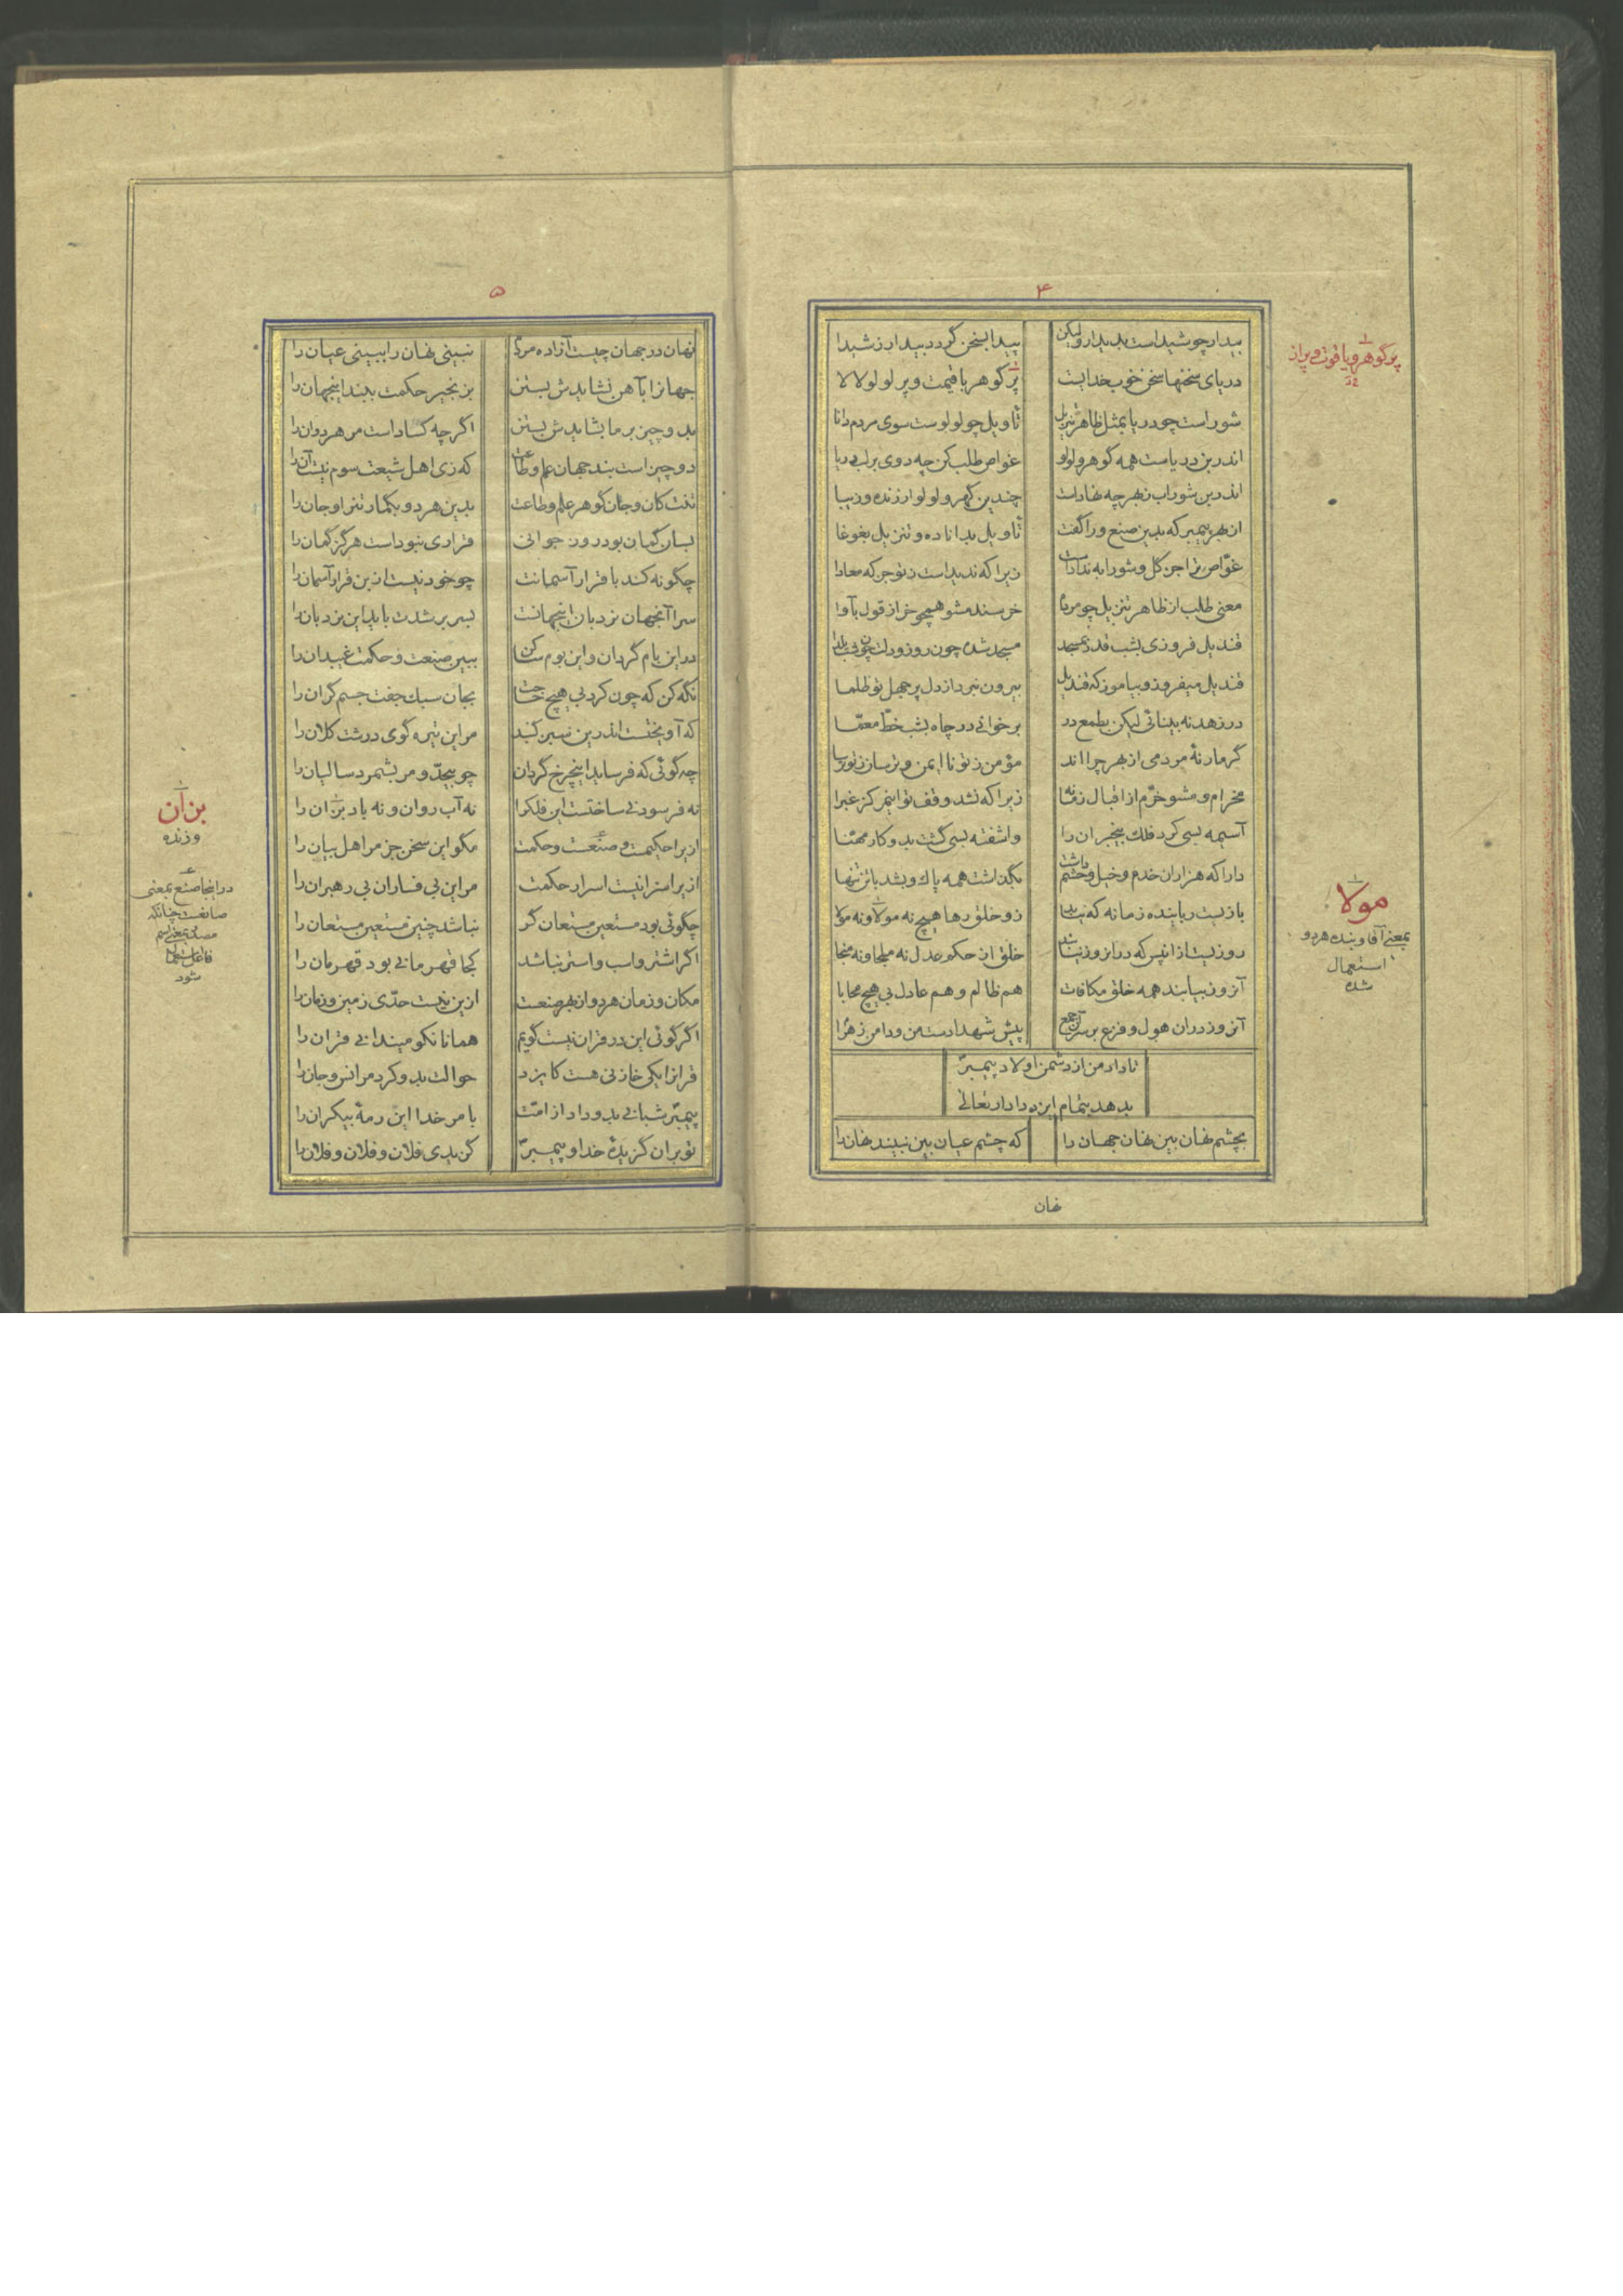 ۴
بیدار چو شیداست بدیدار ولیکن پیدا بسخن گردد بیدار ز شیدا
دریای سخنها سخن خوب خدایست پر گوهر با قیمت و پر لولو لالا
شور است چو دریا بمثل ظاهر تنزیل تاویل چو لولوست سوی مردم دانا
اندر بن دریاست همه گوهر و لولو غواص طلب کن چه دوی بر لب دریا
اندر بن شوراب ز بهر چه نهادست چندین گهر و لولو ارزنده و زیبا
از بهر پیمبر که بدین صنع ورا گفت تاویل بدانا ده و تنزیل بغوغا
غوّاص ترا جز گل و شورابه ندادست زیرا که ندیداست ز تو جز که معادا
معنی طلب از ظاهر تنزیل چو مردم خرسند مشو همچو خر از قول بآوا
قندیل فروزی بشب قدر بمسجد مسجد شده چون روز و دلت چون شب یلدا
قندیل میفروز و بیاموز که قندیل بیرون نبرد از دل پر جهل تو ظلما
در زهد نه بینائی لیکن بطمع در برخوانی در چاه بشب خطّ معمّا
گر مار نهٔ مردمی از بهر چرا اند مؤمن ز تو نا ایمن و ترسان ز تو ترسا
مخرام و مشو خرّم از اقبال زمانه زیرا که نشد وقف تو این مرکز غبرا
آسیمه بسی کرد فلک بیخبران را و اشفته بسی گشت بدو کار مهنّا
دارا که هزاران خدم و خیل و حشم داشت بگذاشت همه پاک و بشد با تن تنها
بازیست رباینده زمانه که نیابد زو خلق رها هیچ نه مولا و نه مولا
روزیست از انپس که در انروز نیابد خلق از حکم عدل نه ملجا و نه منجا
آنروز بیابند همه خلق مکافات هم ظالم و هم عادل بی هیچ محابا
آنروز در ان هول و فزع بر سر آن جمع پیش شهدا دست من و دامن زهرا
تا داد من از دشمن اولاد پیمبرّ
بدهد بتمام ایزد دادار تعالی
بچشم نهان بین نهان جهان را که چشم عیان بین نبیند نهان را
نهان
پر گوهر و یا قوت و پر از
مولا
بمعنی آقا و بنده هر دو
استعمال
شده
۵
نهان در جهان چیست آزاده مردم نبینی نهان را ببینی عیان را
جهانرا بآهن نشایدش بستن بزنجیر حکمت ببند اینجهان را
بدو چیز بر ما بشایدش بستن اگرچه گشاد است مر هر دوان را
دو چیز است بند جهان علم و طاعت که زی اهل شیعت سوم نیست آن را
تنت کان و جان گوهر علم و طاعت بدین هر دو بگمار تن را و جان را
بسان گمان بود روز جوانی قراری نبوداست هرگز گمان را
چگونه کند با قرار آسمانت چو خود نیست از بن قرار آسمان را
سرا آنجهان نردبان اینجهانست بسر بر شدت باید این نردبان را
در این بام گردان و این بوم ساکن ببین صنعت و حکمت غیبدان را
نگه کن که چون کرد بی هیچ حاجت بجان سبک جفت جسم گران را
که آویختست اندرین سبز گنبد مر این تیره گوی درشت کلان را
چه گوئی که فرساید اینچرخ گردان چو بیحدّ و مر بشمرد سالیان را
نه فرسودنی ساختست این فلکرا نه آب روان و نه باد بزان را
ازیرا حکیمست و صنعست و حکمت مگو این سخن جز مر اهل بیان را
ازیرا سزا نیست اسرار حکمت مر این بی فساران بی رهبران را
چگوئی بود مستعین مستعان گر نباشد چنین مستعین مستعان را
اگر اشتر و اسب و استر نباشد کجا قهرمانی بود قهرمان را
مکان و زمان هر دو از بهر صنعت ازین نیست حدّی زمین و زمان را
اگر گوئی این در قران نیست گویم همانا نکو میندانی قران را
قرانرا یکی خازنی هست کایزد حوالت بدو کرد مر انس و جان را
پیمبّر شبانی بدو داد از امّت بامر خدا این رمهٔ بیکران را
تو بر ان گزیدهٔ خدا و پیمبرّ گزیدی فلان و فلان و فلان را
بزان
وزنده
در اینجا صنع بمعنی
صانعست چنانکه
مصدر بمعنی اسم
فاعل استعمال
شود